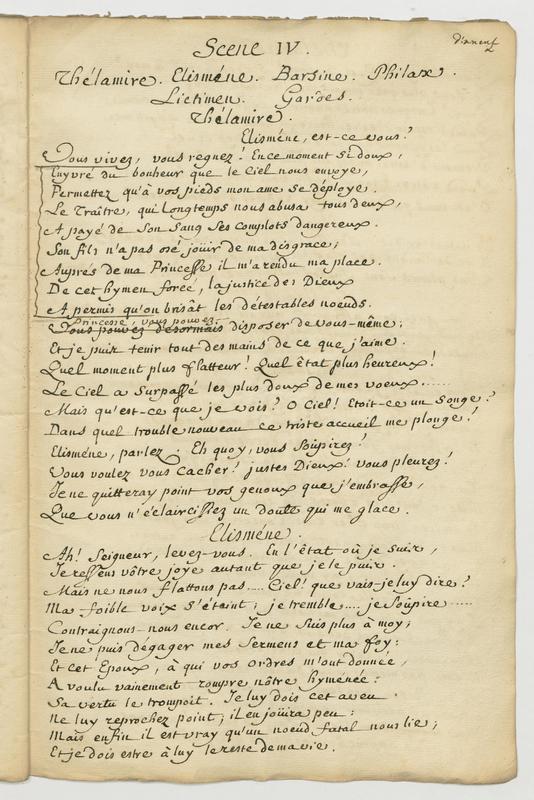 Scene IV.
Thélamire. Elisméne. Barsine. Philax.
Lictimen. Gardes.
Thélamire.
Elisméne, est-ce vous?
Vous vivez, vous regnez! En ce moment si doux,
Enyvré du bonheur que le Ciel nous envoye,
Permettez qu'à vos pieds mon ame se déploye.
Le Traître, qui longtemps nous abusa tous deux,
A payé de son sang ses complots dangereux.
Son fils n'a pas osé joüir de ma disgrace;
Auprés de ma Princesse il m'a rendu ma place.
De cet hymen forcé, la justice des Dieux
A permis qu'on brisât les détestables noeuds.
Princesse, vous pouvez
Vous pouvez désormais disposer de vous-même;
Et je puis tenir tout des mains de ce que j'aime.
Quel moment plus flatteur! Quel état plus heureux!
Le Ciel a surpassé les plus doux de mes voeux......
Mais qu'est-ce que je vois? O Ciel! Etoit-ce un songe?
Dans quel trouble nouveau ce triste accueil me plonge!
Elisméne, parlez. Eh quoy, vous soûpirez!
Vous voulez vous cacher! justes Dieux! vous pleurez!
Je ne quitteray point vos genoux que j'embrasse,
Que vous n'éclaircissez un doute qui me glace.
Elisméne.
Ah! Seigneur, levez-vous. En l'état où je suis,
Je ressens vôtre joye autant que je le puis.
Mais ne nous flattons pas.... Ciel! que vais-je luy dire?
Ma foible voix s'éteint; je tremble.... je soûpire.....
Contraignons-nous encor. Je ne suis plus à moy;
Je ne puis dégager mes sermens et ma foy:
Et cet Epoux, à qui vos ordres m'ont donnée,
A voulu vainement rompre nôtre hyménée:
Sa vertu le trompoit. Je luy dois cet aveu.
Ne luy reprochez point; il en joüira peu:
Mais enfin il est vray qu'un noeud fatal nous lie;
Et je dois estre à luy le reste de ma vie.